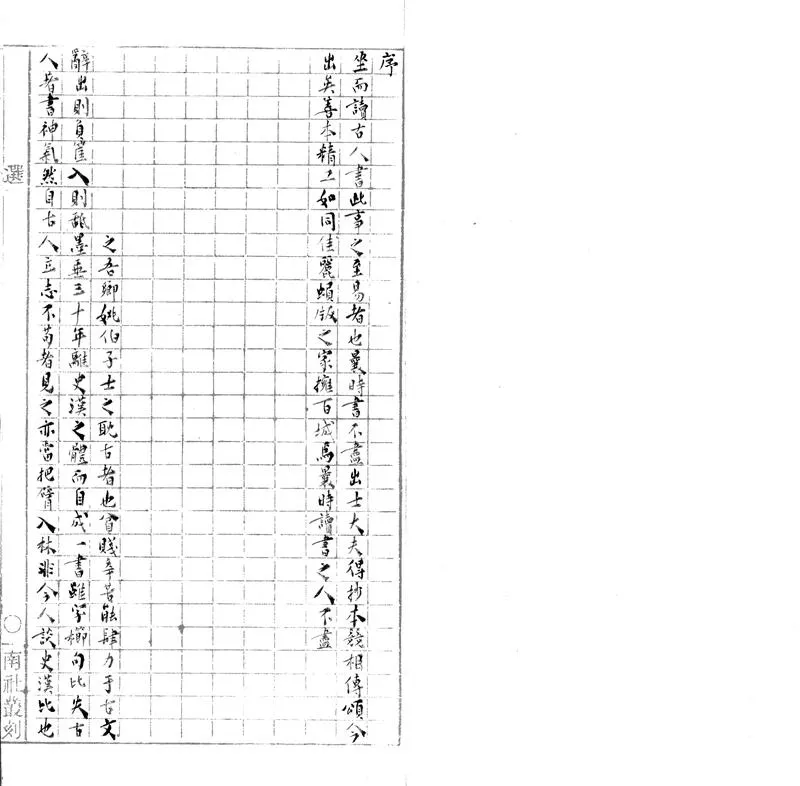 序
坐而讀古人書此事之至易者也曩時書不盡出士大夫得抄本競相傳頌今
出矣善本精工如同佳麗蝢版之家擁百城焉曩時讀書之人不盡
之吾鄉姚伯子士之耽古者也貧賤辛苦能肆力于古文
辭出則負篋入則舐墨垂三十年離史漢之體而自成一書雖字櫛句比失古
人著書神氣然自古人立志不苟者見之亦當把臂入林非今人談史漢比也
選
南社叢刻